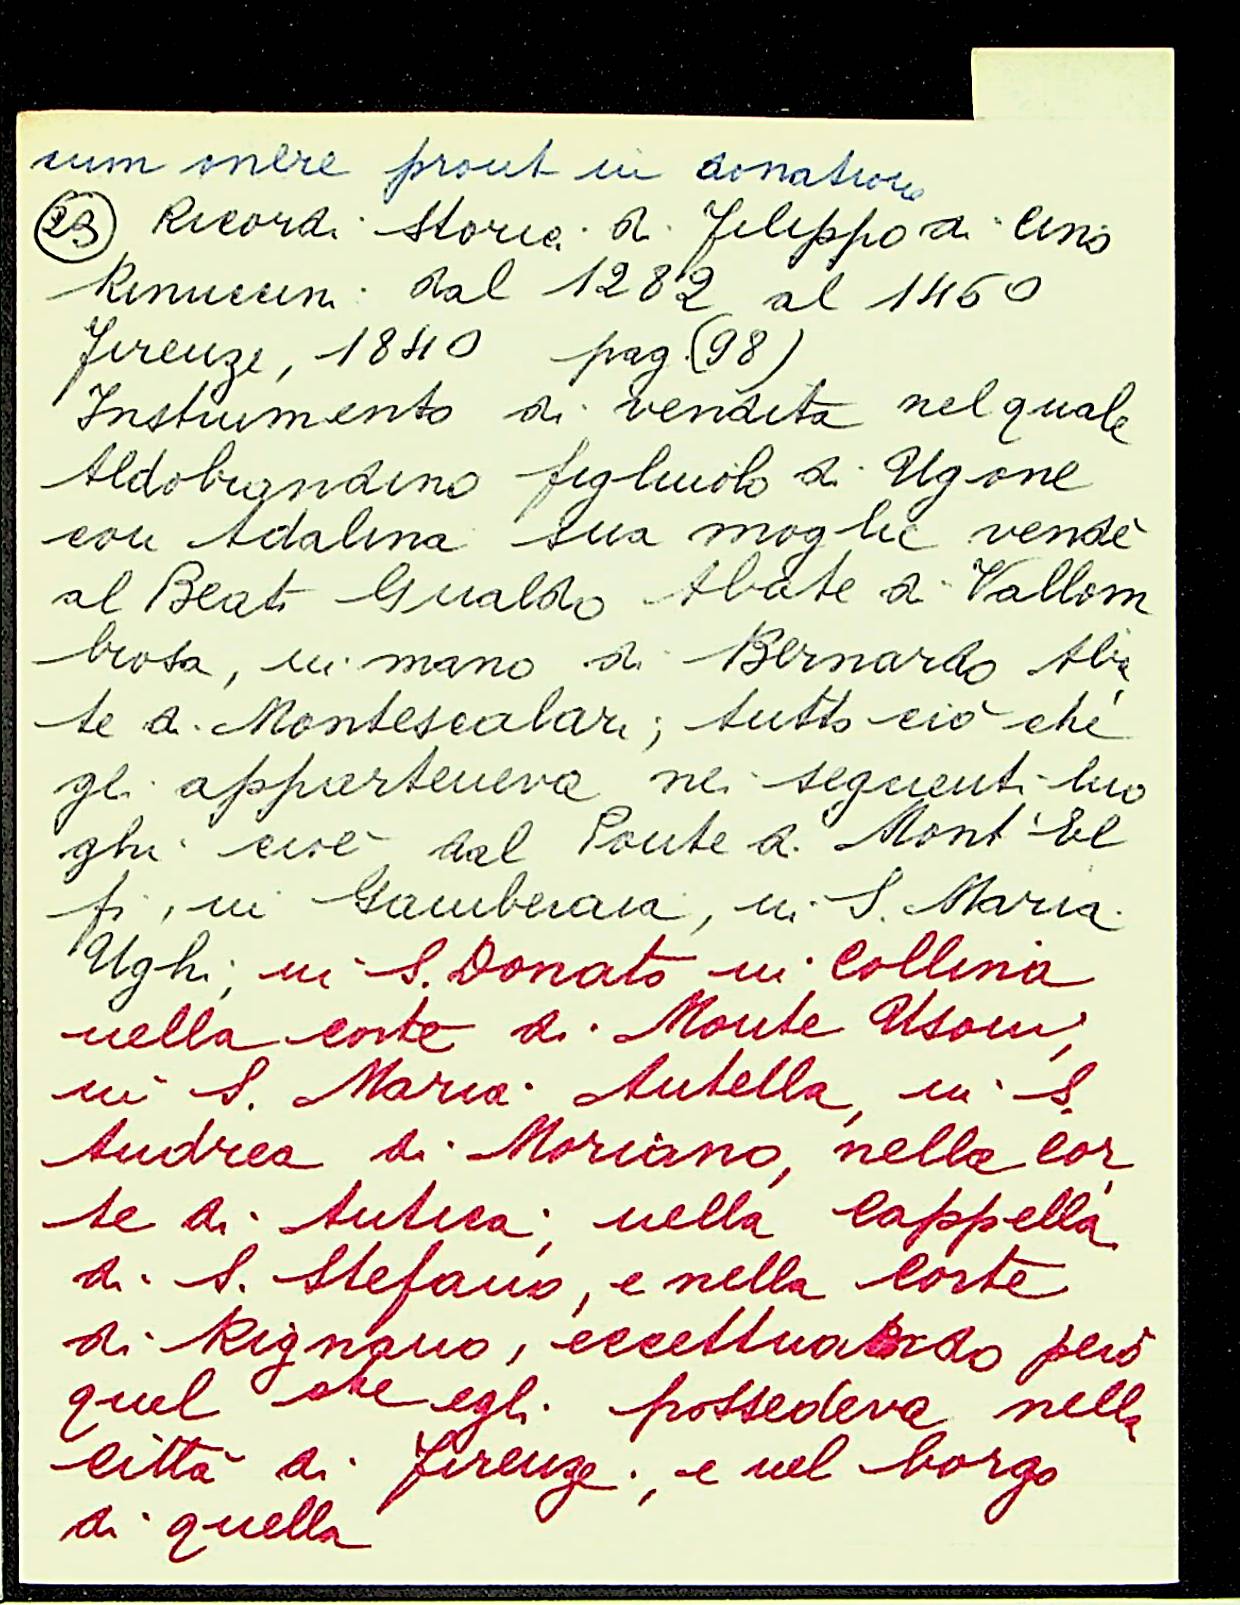 cum onere prout in donatione
(23) Ricordi storici di Filippo di Cino
Rinuccini dal 1282 al 1460
Firenze, 1840 pag. (98)
Instrumento di vendita nel quale
Aldobrandino figliuolo di Ugone
con Adalina sua moglie vendè
al Beato Gualdo Abate di Vallom
brosa, in mano di Bernardo Aba
te di Montescalari; tutto ciò che
gli apparteneva nei seguenti luo
ghi cioè dal Ponte a Mont'El
fi, in Gamberaia, in S. Maria
Ughi; in S. Donato in Collina
nella corte di Monte Usoni,
in S. Maria Antella, in S.
Andrea di Moriano, nella cor
te di Antica; nella Cappella
di S. Stefano, e nella Corte
di Rignano, eccettuando però
quel che egli possedeva nella
città di Firenze, e nel borgo
di quella